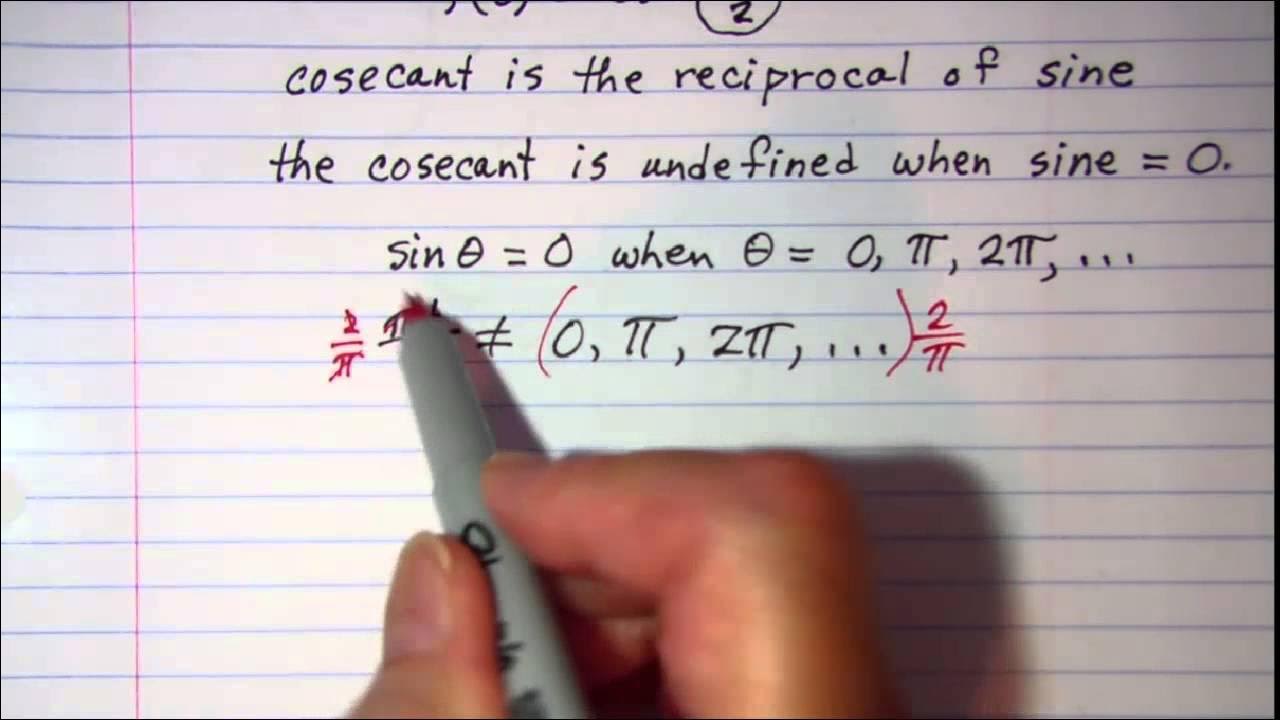 2
cosecant is the reciprocal of sine
the cosecant is undefined when sine = 0.
sin θ = 0 when θ = 0, π, 2π, ...
2/π ≠ (0, π, 2π, ...) 2/π